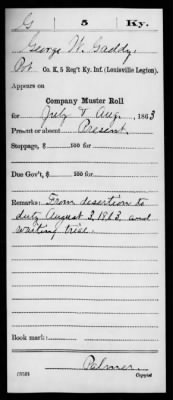 G 5 Ky.
George W. Gaddy
Pvt Co. K, 5 Reg't Ky. Inf. (Louisville Legion).
Appears on
Company Muster Roll
for July & Aug, 1863
Present or absent Present
Stoppage, $ 100 for
Due Gov't, $ 100 for
Remarks: From desertion to
duty August 3, 1863, and
waiting trial.
Book mark:
Palmer
Copyist